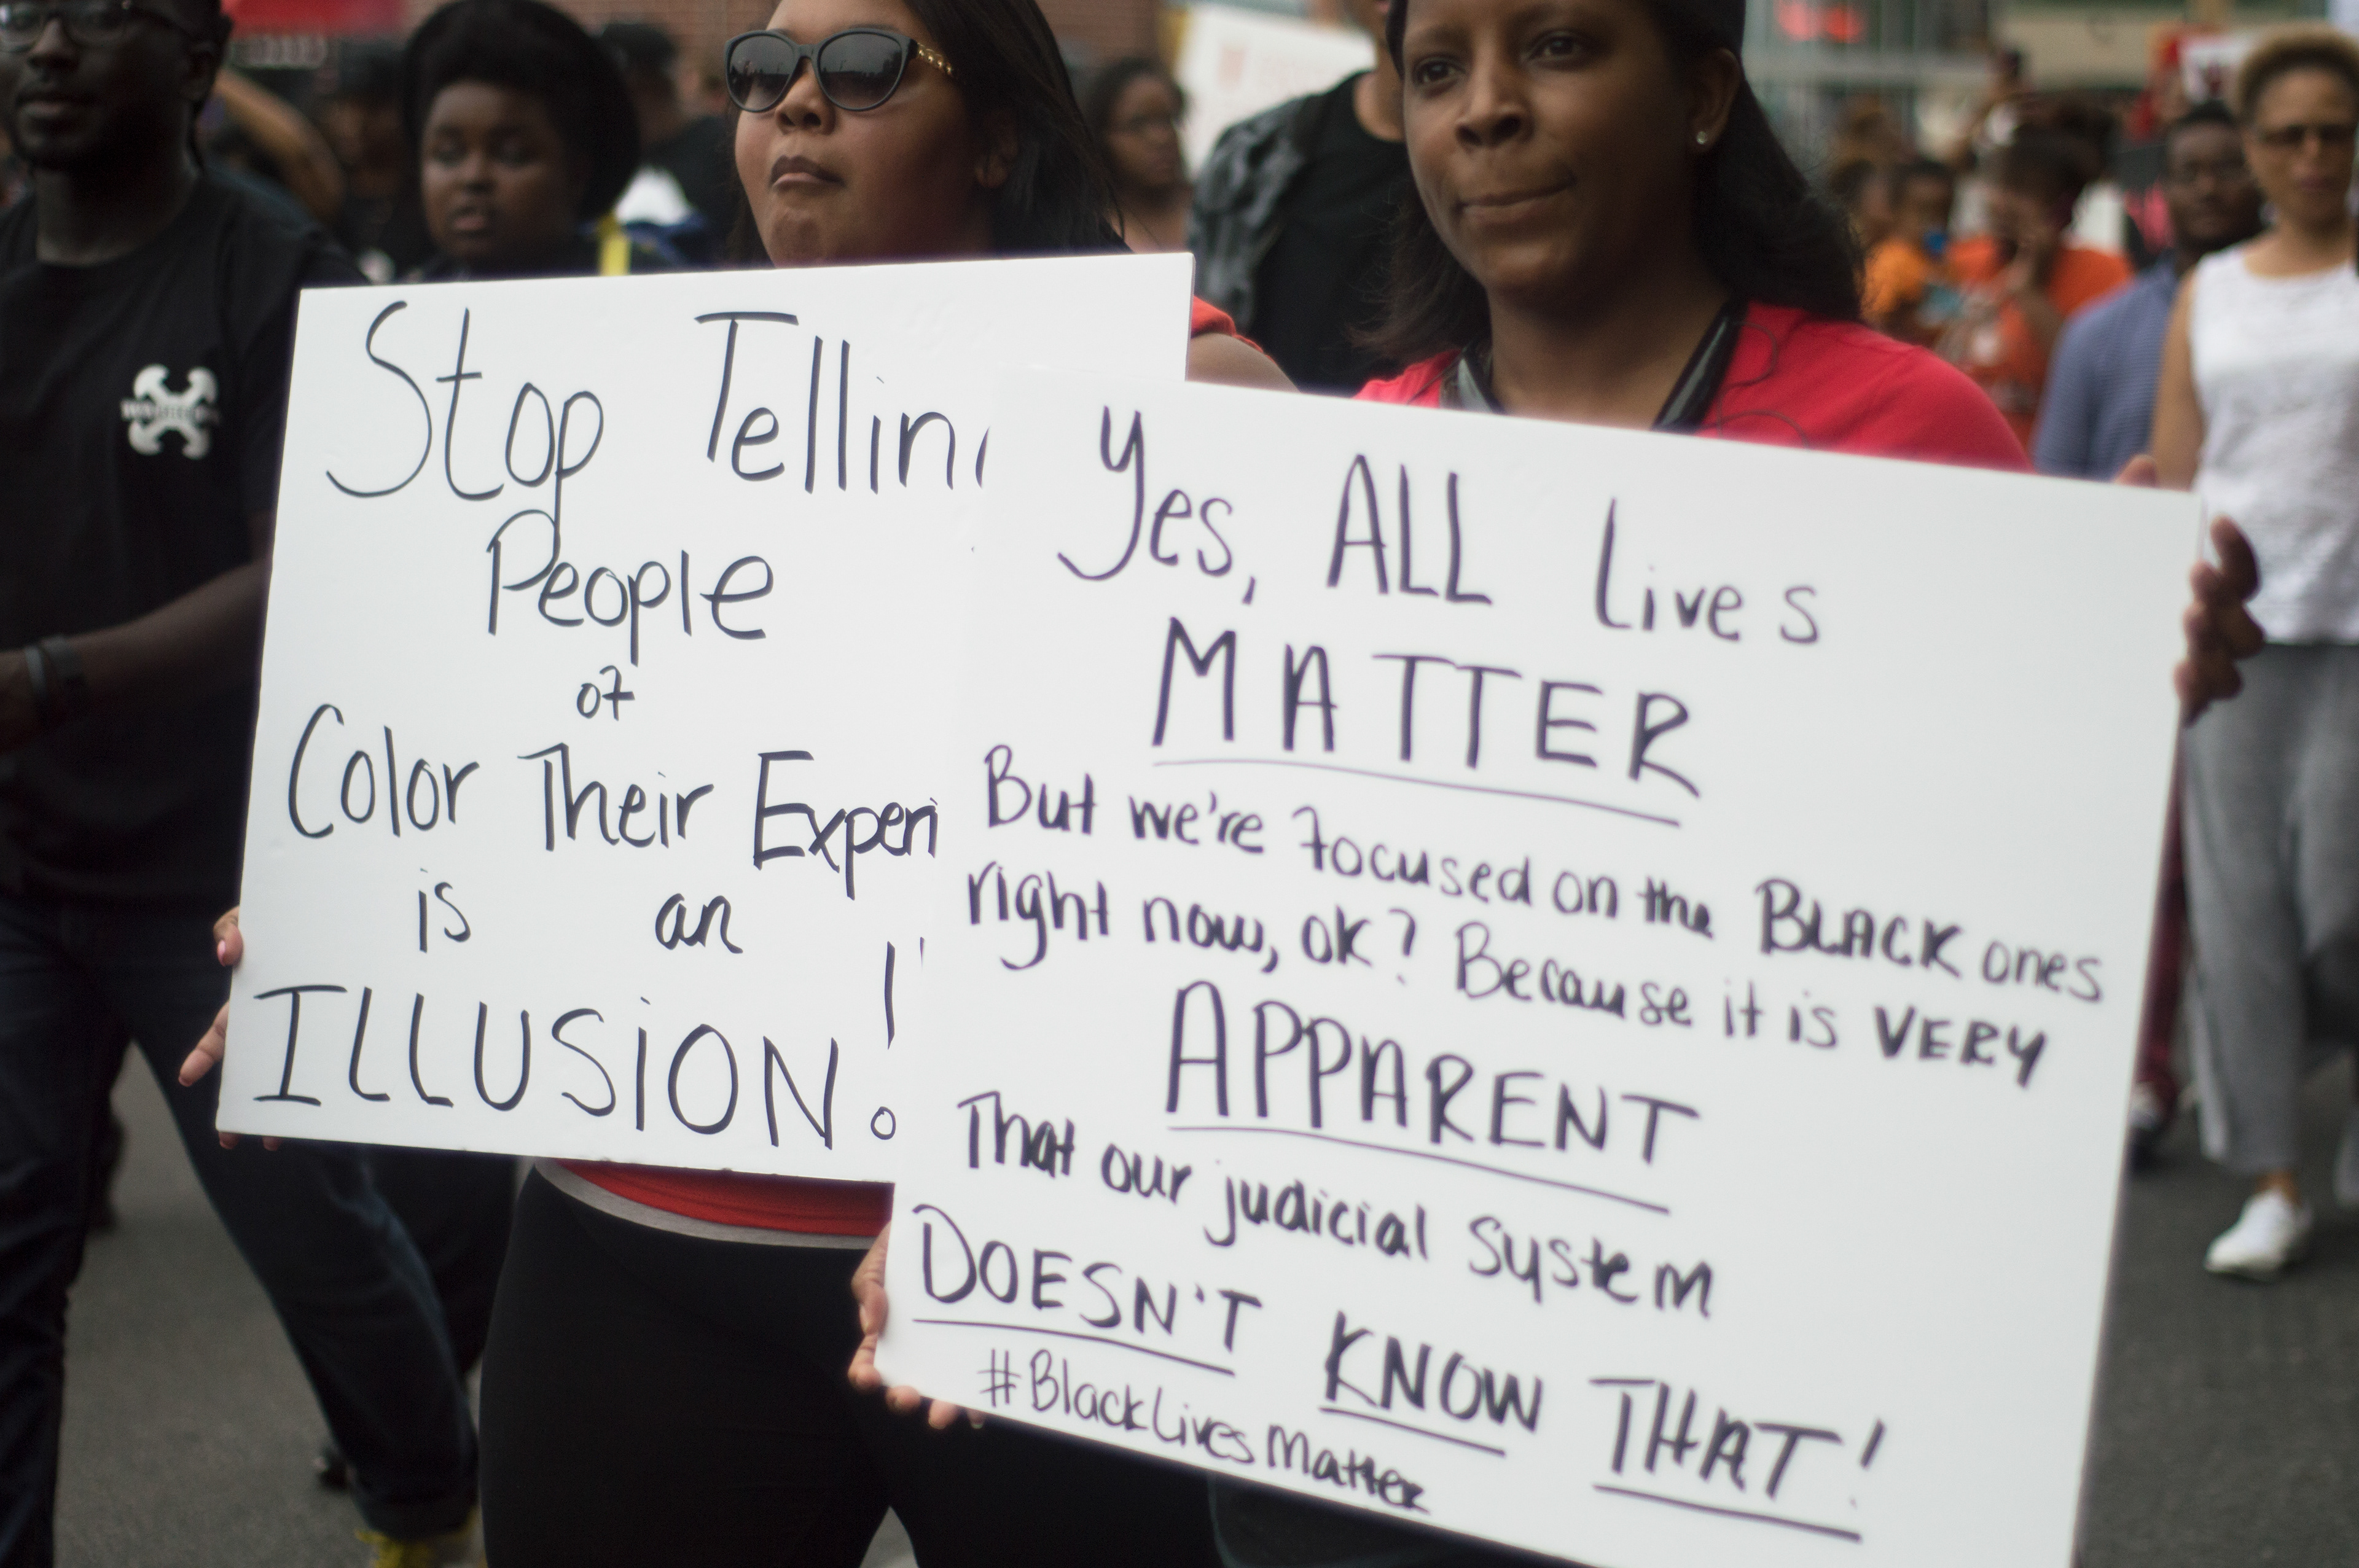 Stop Tellin
People
of
Color Their Experi
is an
ILLUSION!
Yes, ALL Lives
MATTER
But we're focused on the BLACK ones
right now, ok? Because it is VERY
APPARENT
That our judicial system
DOESN'T KNOW THAT!
#BlackLivesMatter